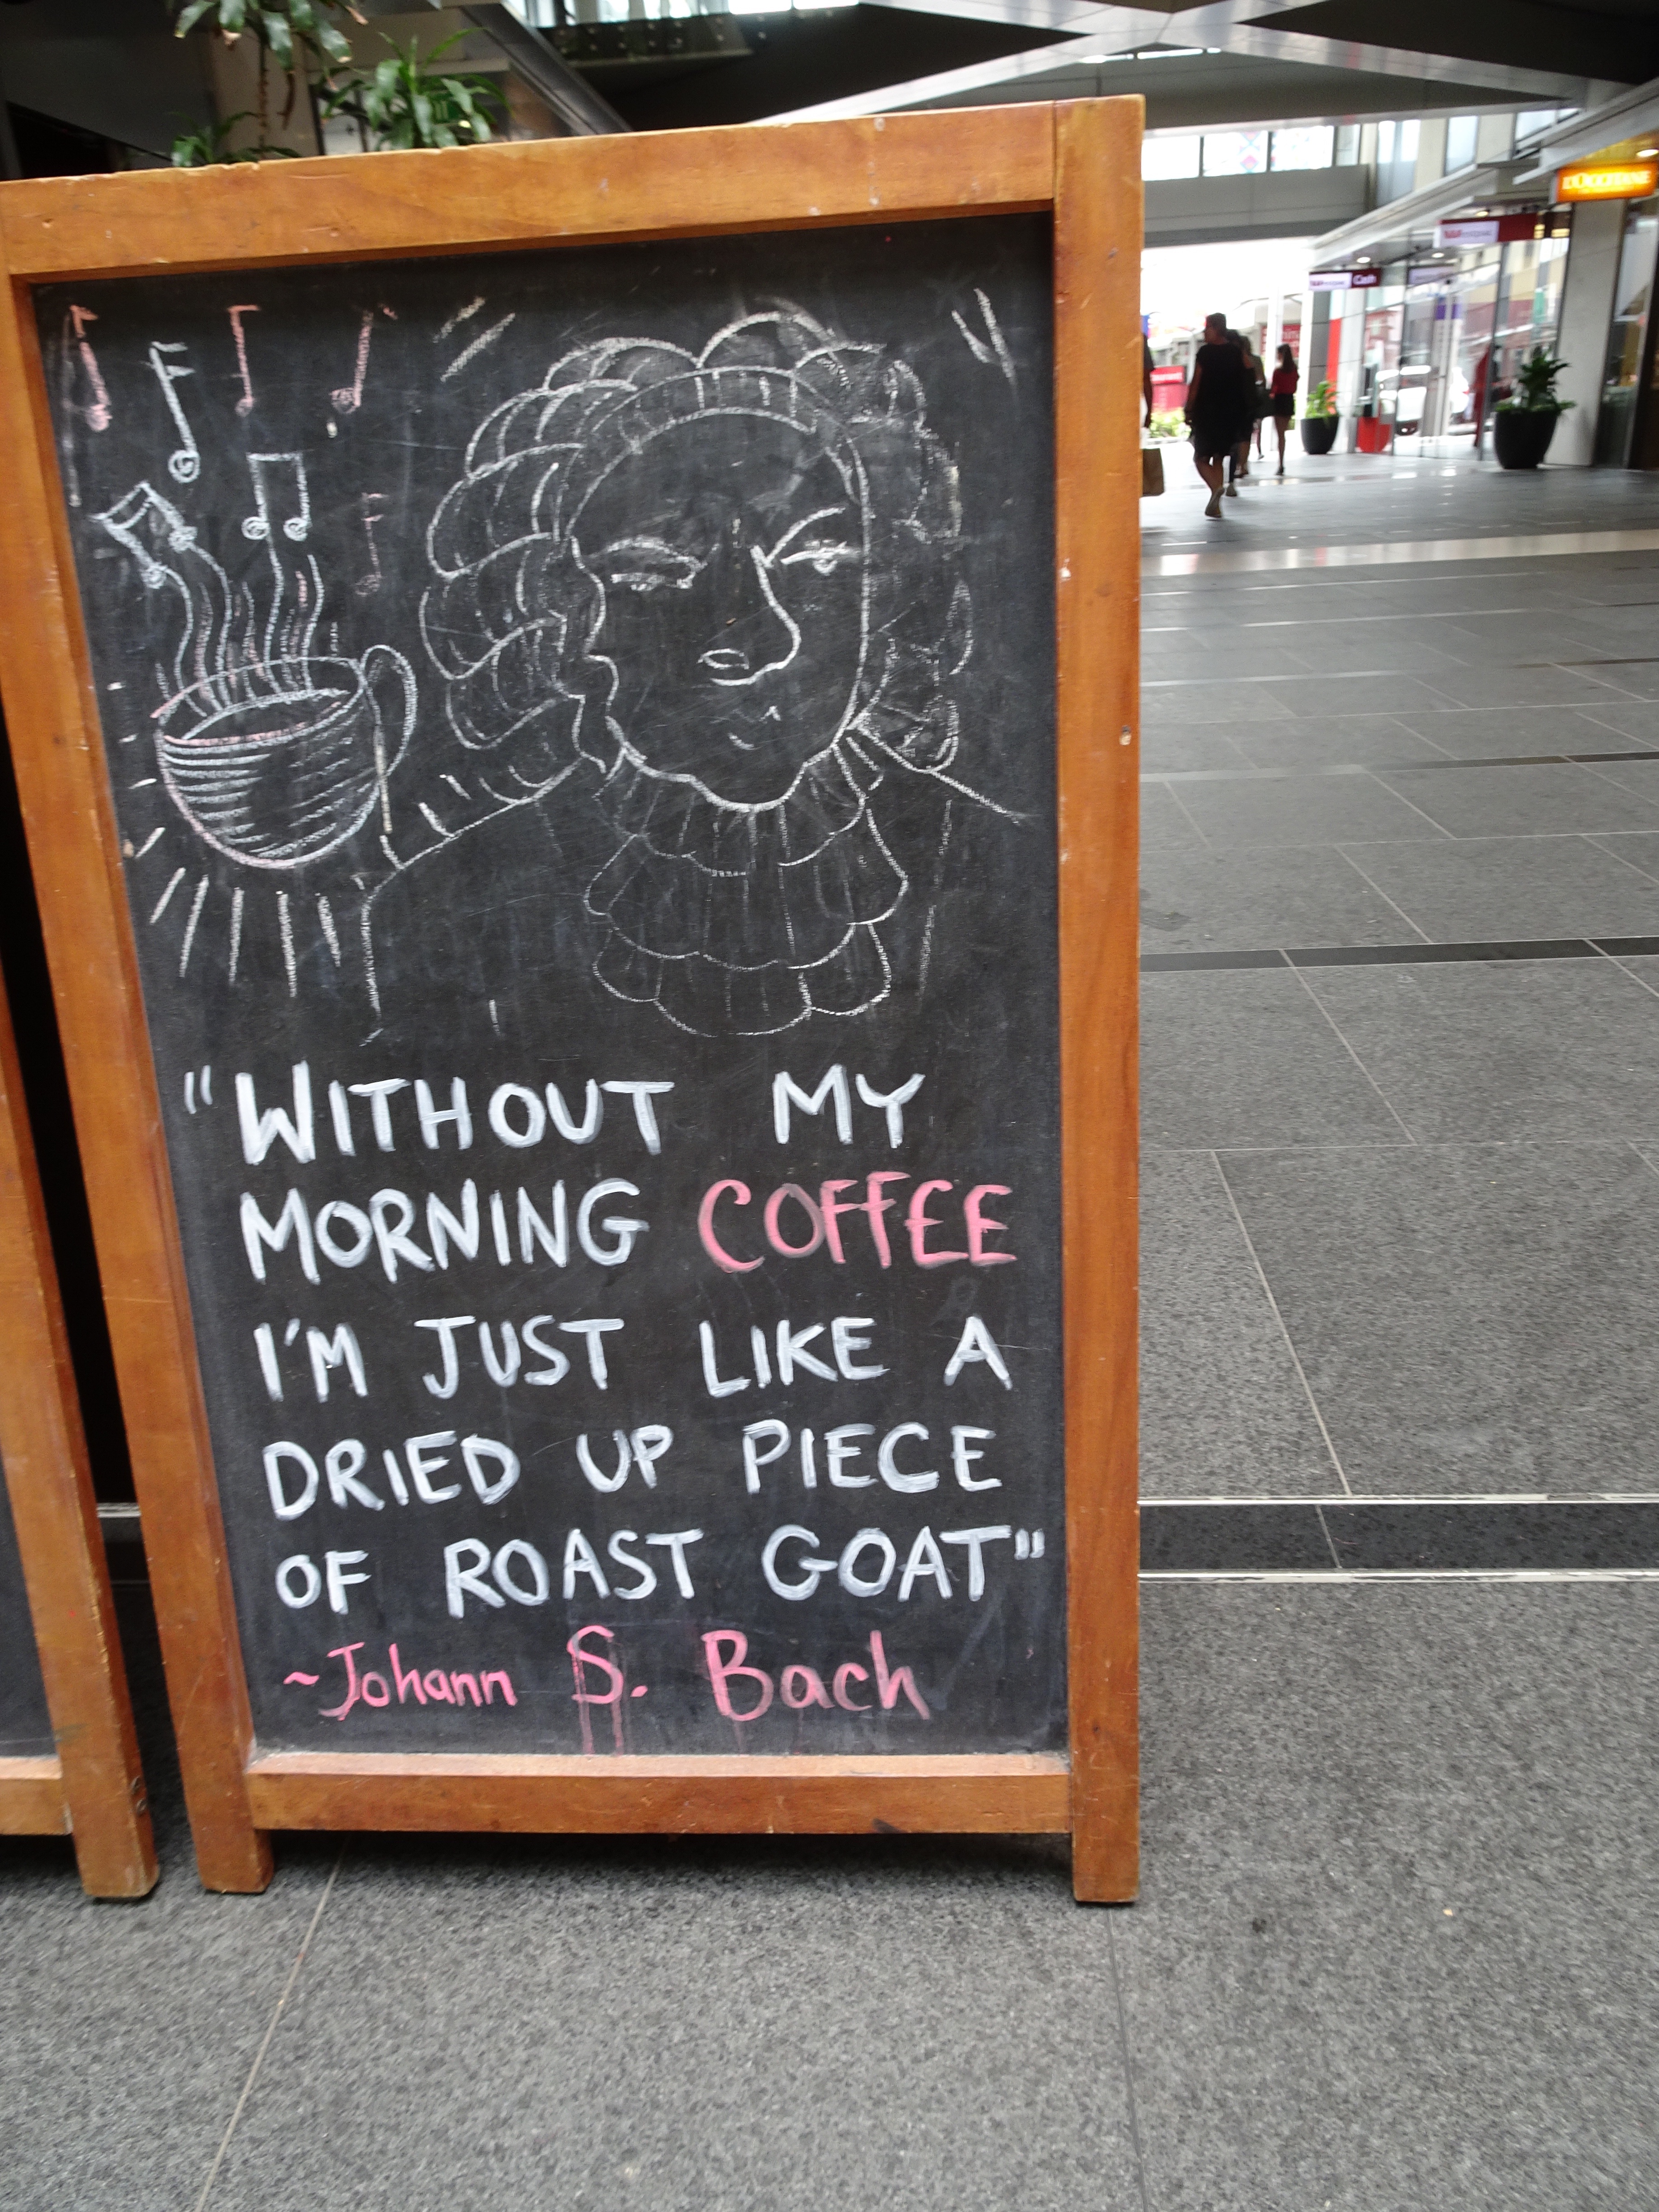 L'OCCITANE
Westpac
Cash
"WITHOUT MY
MORNING COFFEE
I'M JUST LIKE A
DRIED UP PIECE
OF ROAST GOAT"
~Johann S. Bach